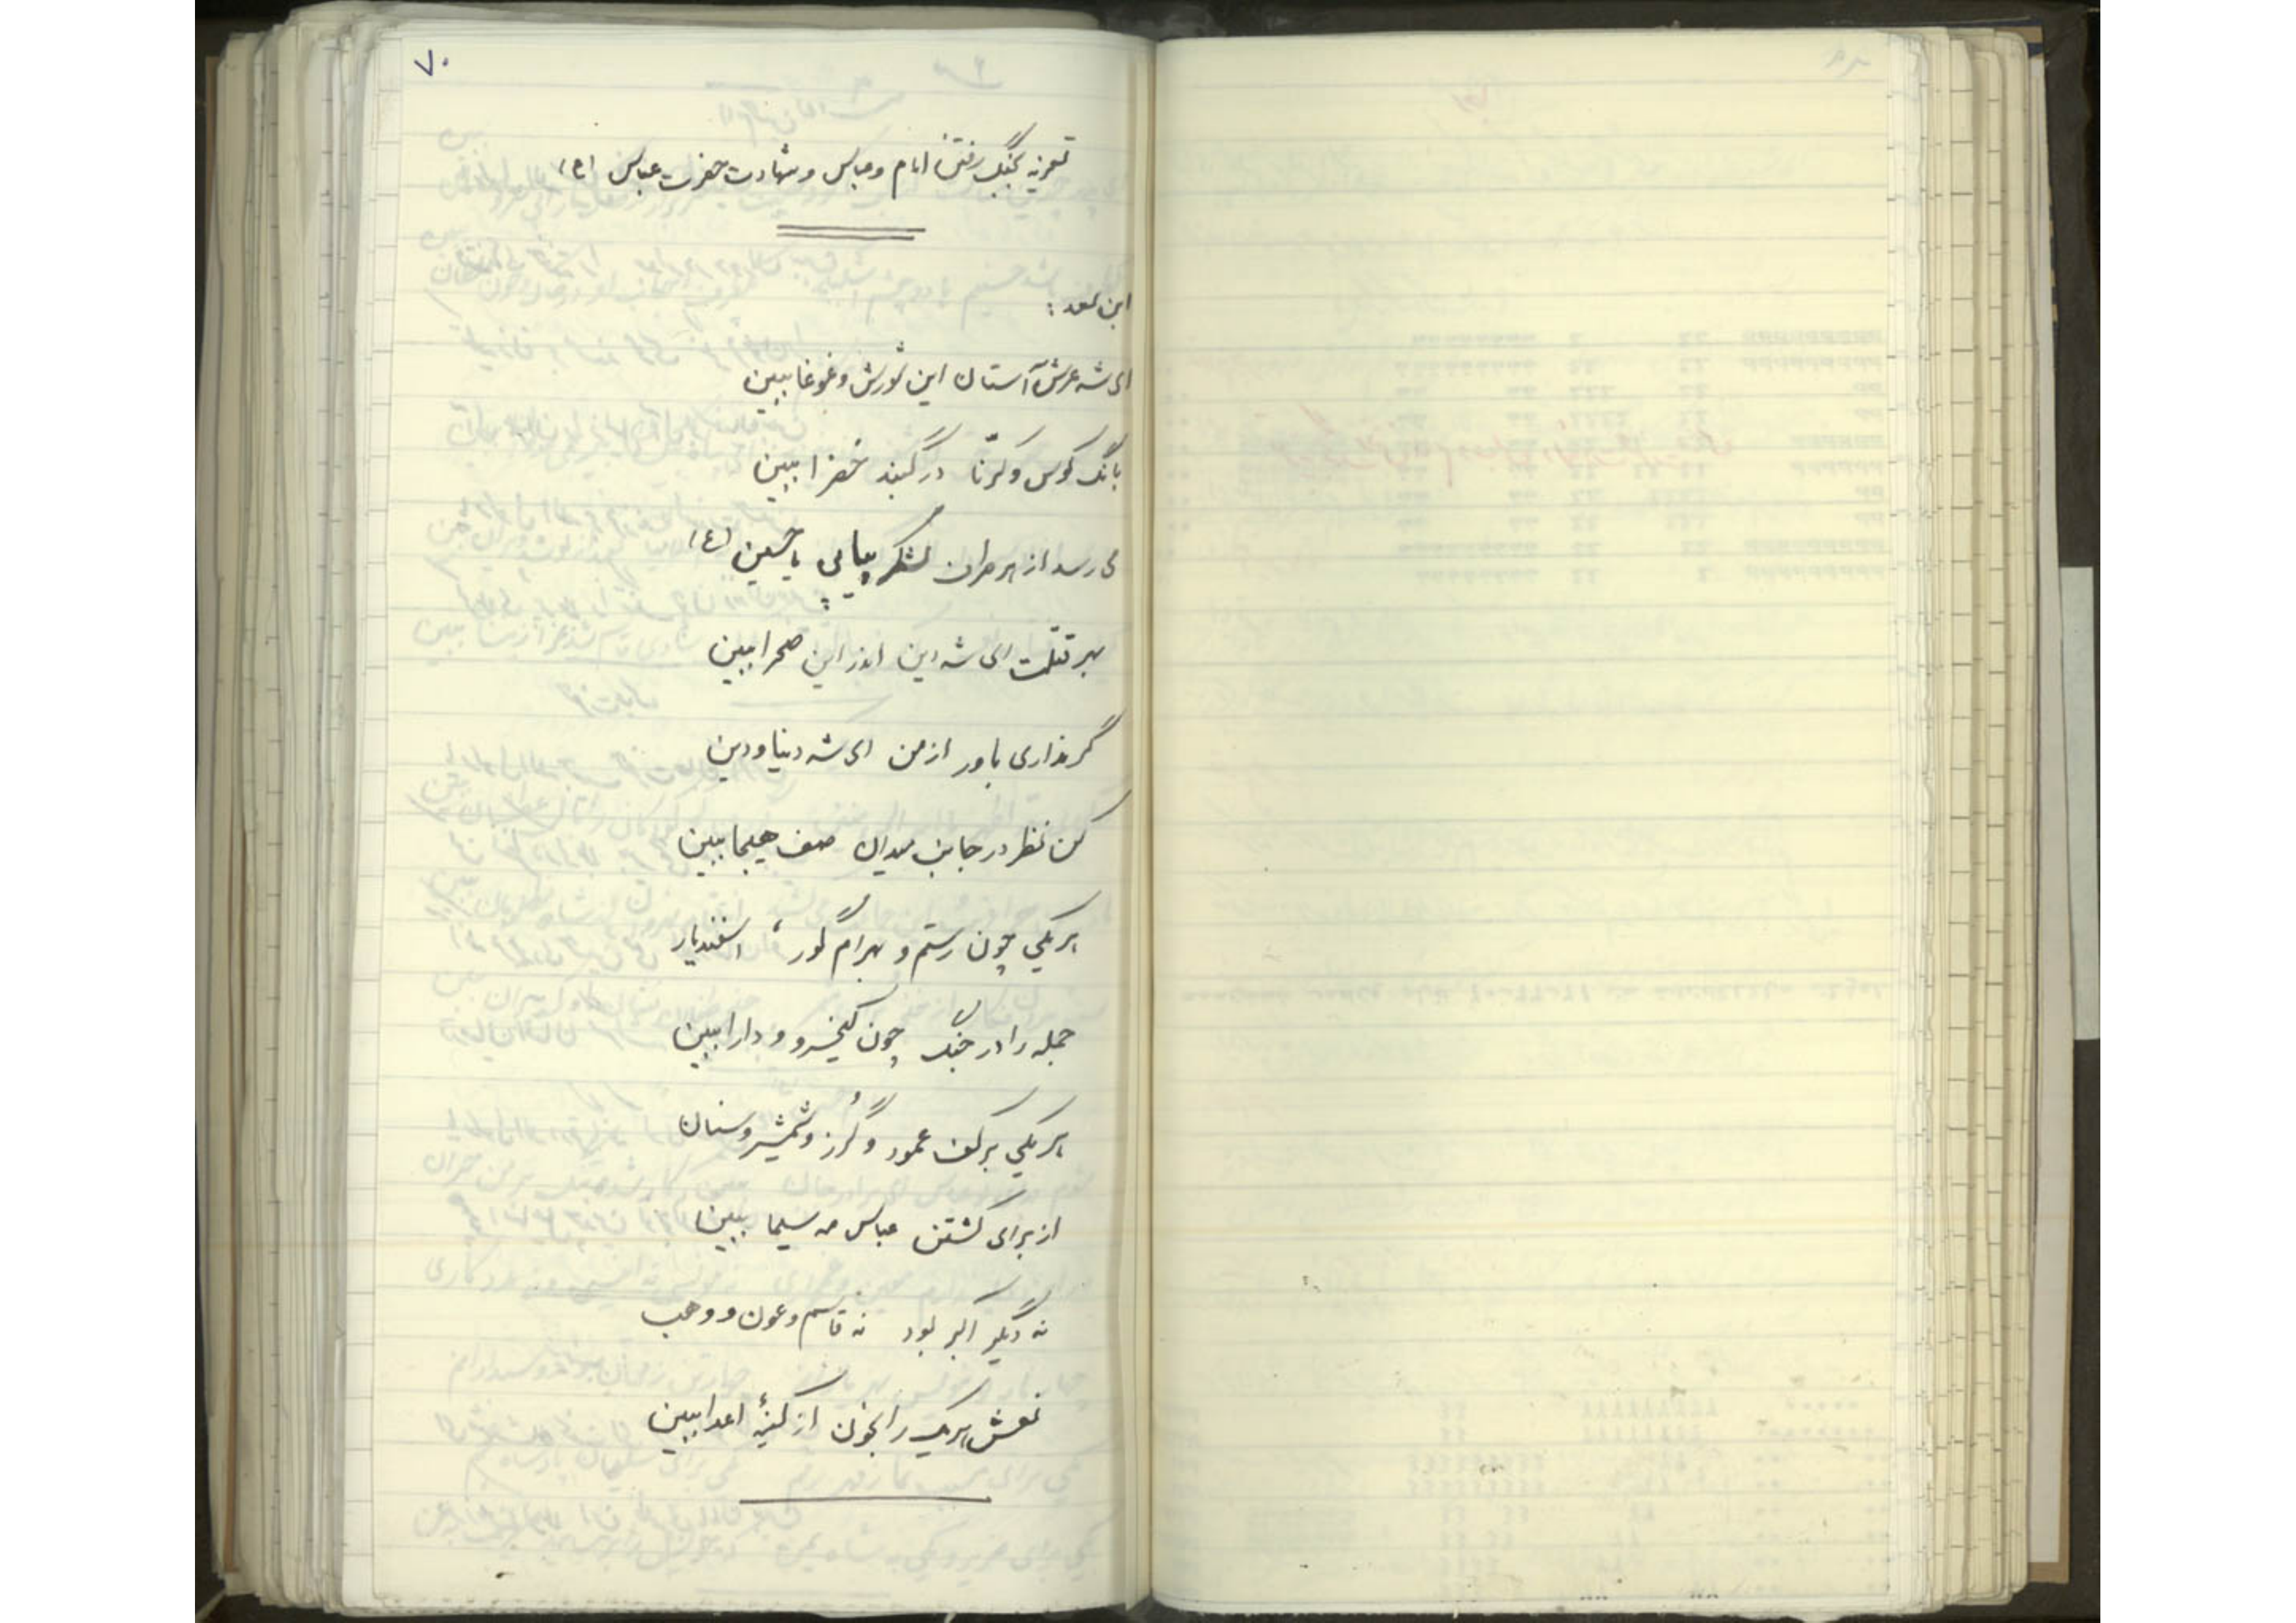 ۷۰
تعزیه بجنگ رفتن امام و عباس و شهادت حضرت عباس (ع)
ابن سعد :
ای شه عرش آستان این شورش و غوغا ببین
بانگ کوس و کرّنا در گنبد خضرا ببین
می رسد از هر طرف لشکر پیاپی یا حسین (ع)
بهر قتلت ای شه دین اندر این صحرا ببین
گر نداری باور از من ای شه دنیا و دین
کن نظر در جانب میدان صف هیجا ببین
هر یکی چون رستم و بهرام گور ، اسفندیار
جمله را در جنگ چون کیخسرو و دارا ببین
هر یکی بر کف عمود و گُرز و شمشیر و سنان
از برای کشتن عباس مه سیما ببین
نه دیگر اکبر بود نه قاسم و عون و وهب
نعش هر یک را بخون از کینهٔ اعدا ببین